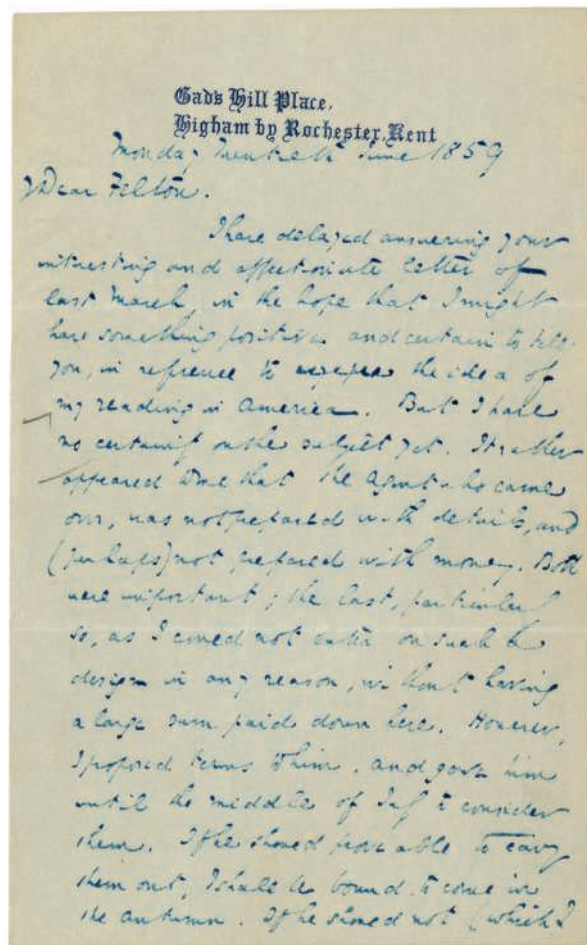 Gad's Hill Place,
Higham by Rochester, Kent
Monday Twentieth June 1859
My Dear Felton.
I have delayed answering your
interesting and affectionate letter of
last March, in the hope that I might
have something positive and certain to tell
you, in reference to the idea of
my reading in America. But I have
no certainty on the subject yet. It rather
appeared to me that the Agent who came
over, was not prepared with details, and
(perhaps) not prepared with money. Both
were important; the last, particularly
so, as I could not enter on such a
design in any reason, without having
a large sum paid down here. However,
I proposed terms to him, and gave him
until the middle of July to consider
them. If he should prove able to carry
them out, I shall be bound to come in
the autumn. If he should not (which I